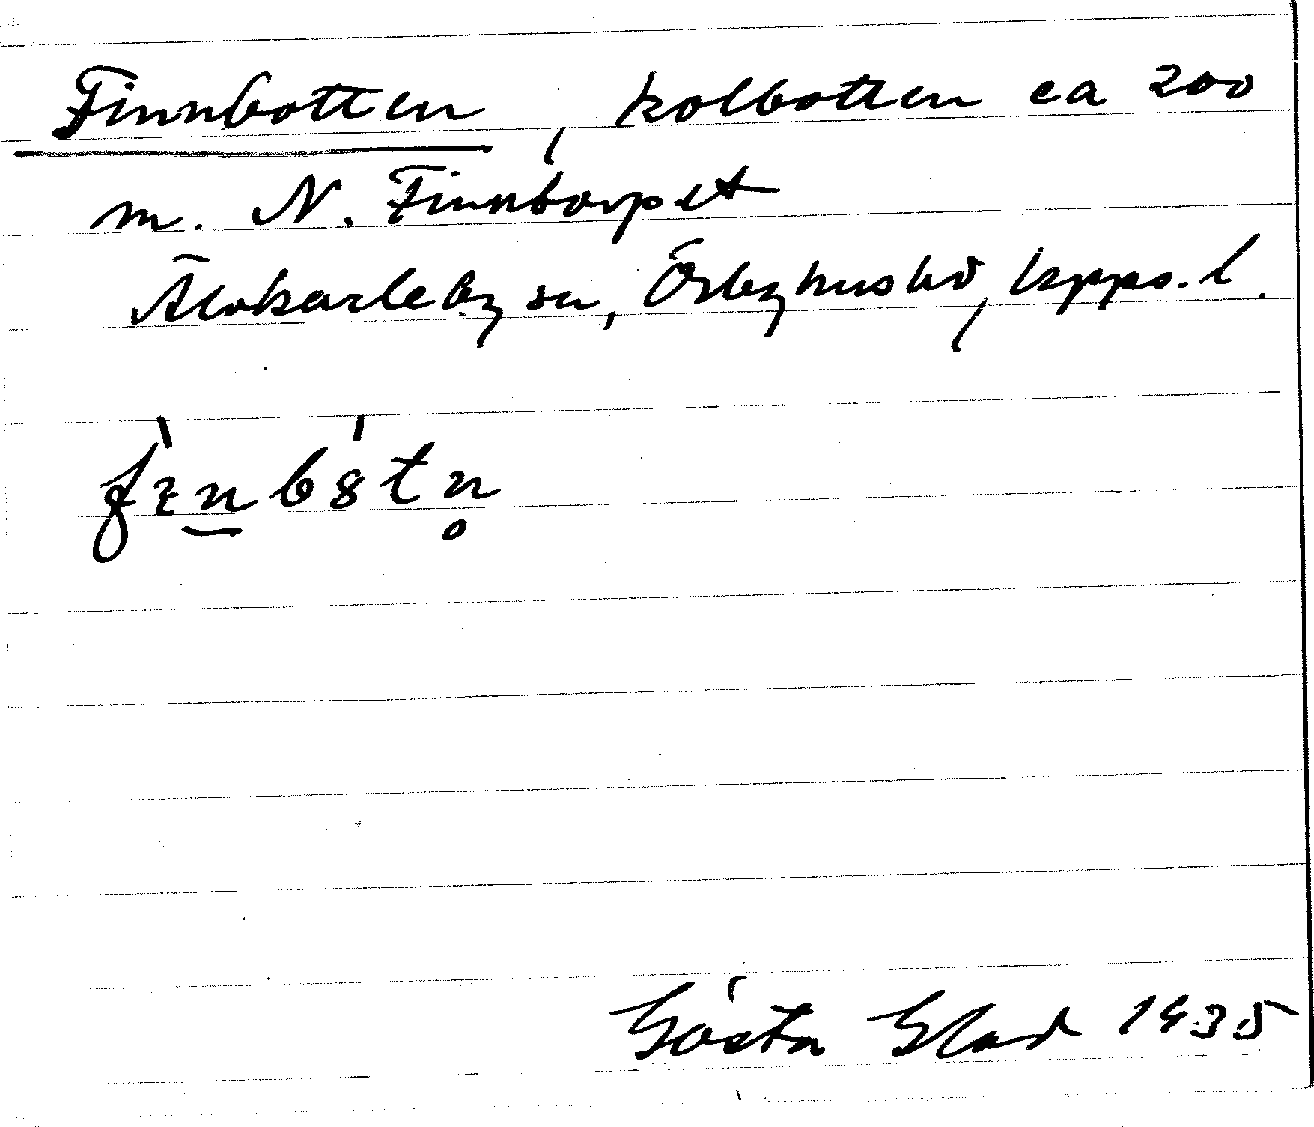 Finnbotten, kolbotten ca 200
m. N. Finntorpet
Älvkarleby sn, Örbyhus hd, Upps. l.
fìnbótn̥
Gösta Glad 1935